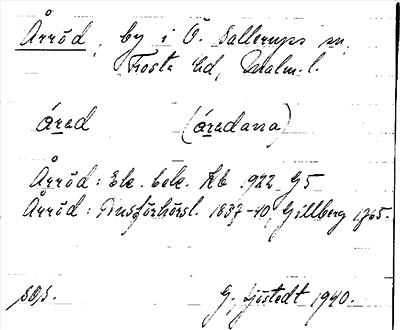 Årröd, by i Ö. Sallerups sn,
Frosta hd, Malm. l.
årad (åradana)
Årröd: Ek. bok. Kb 1922 G5
Årröd: Husförhörsl. 1837-40, Gillberg 1765.
G. Sjöstedt 1940.